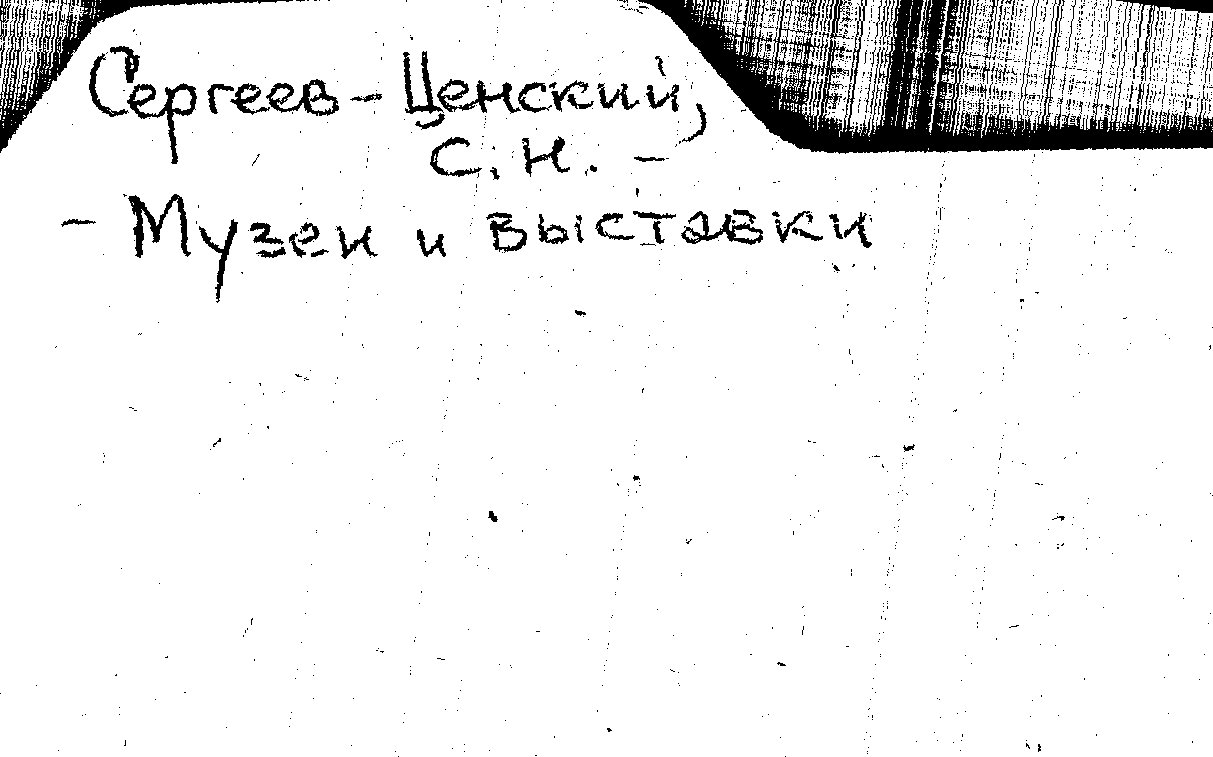 Сергеев-Ценский,
С.Н. -
- Музеи и выставки